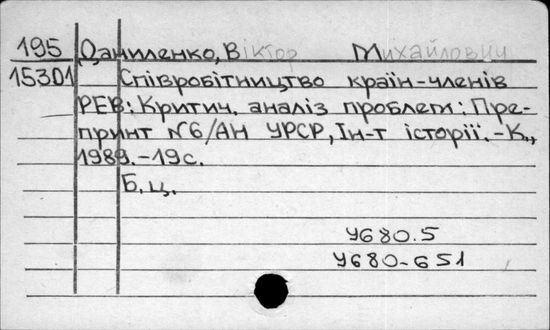 195 Даниленко, Віктор Михайлович
15301 Співробітництво країн-членів
РЕВ: Критич. аналіз проблем: Пре-
принт №6/АН УРСР, Ін-т історії. -К.,
1989. -19с.
Б.ц.
У680.5
У680-651